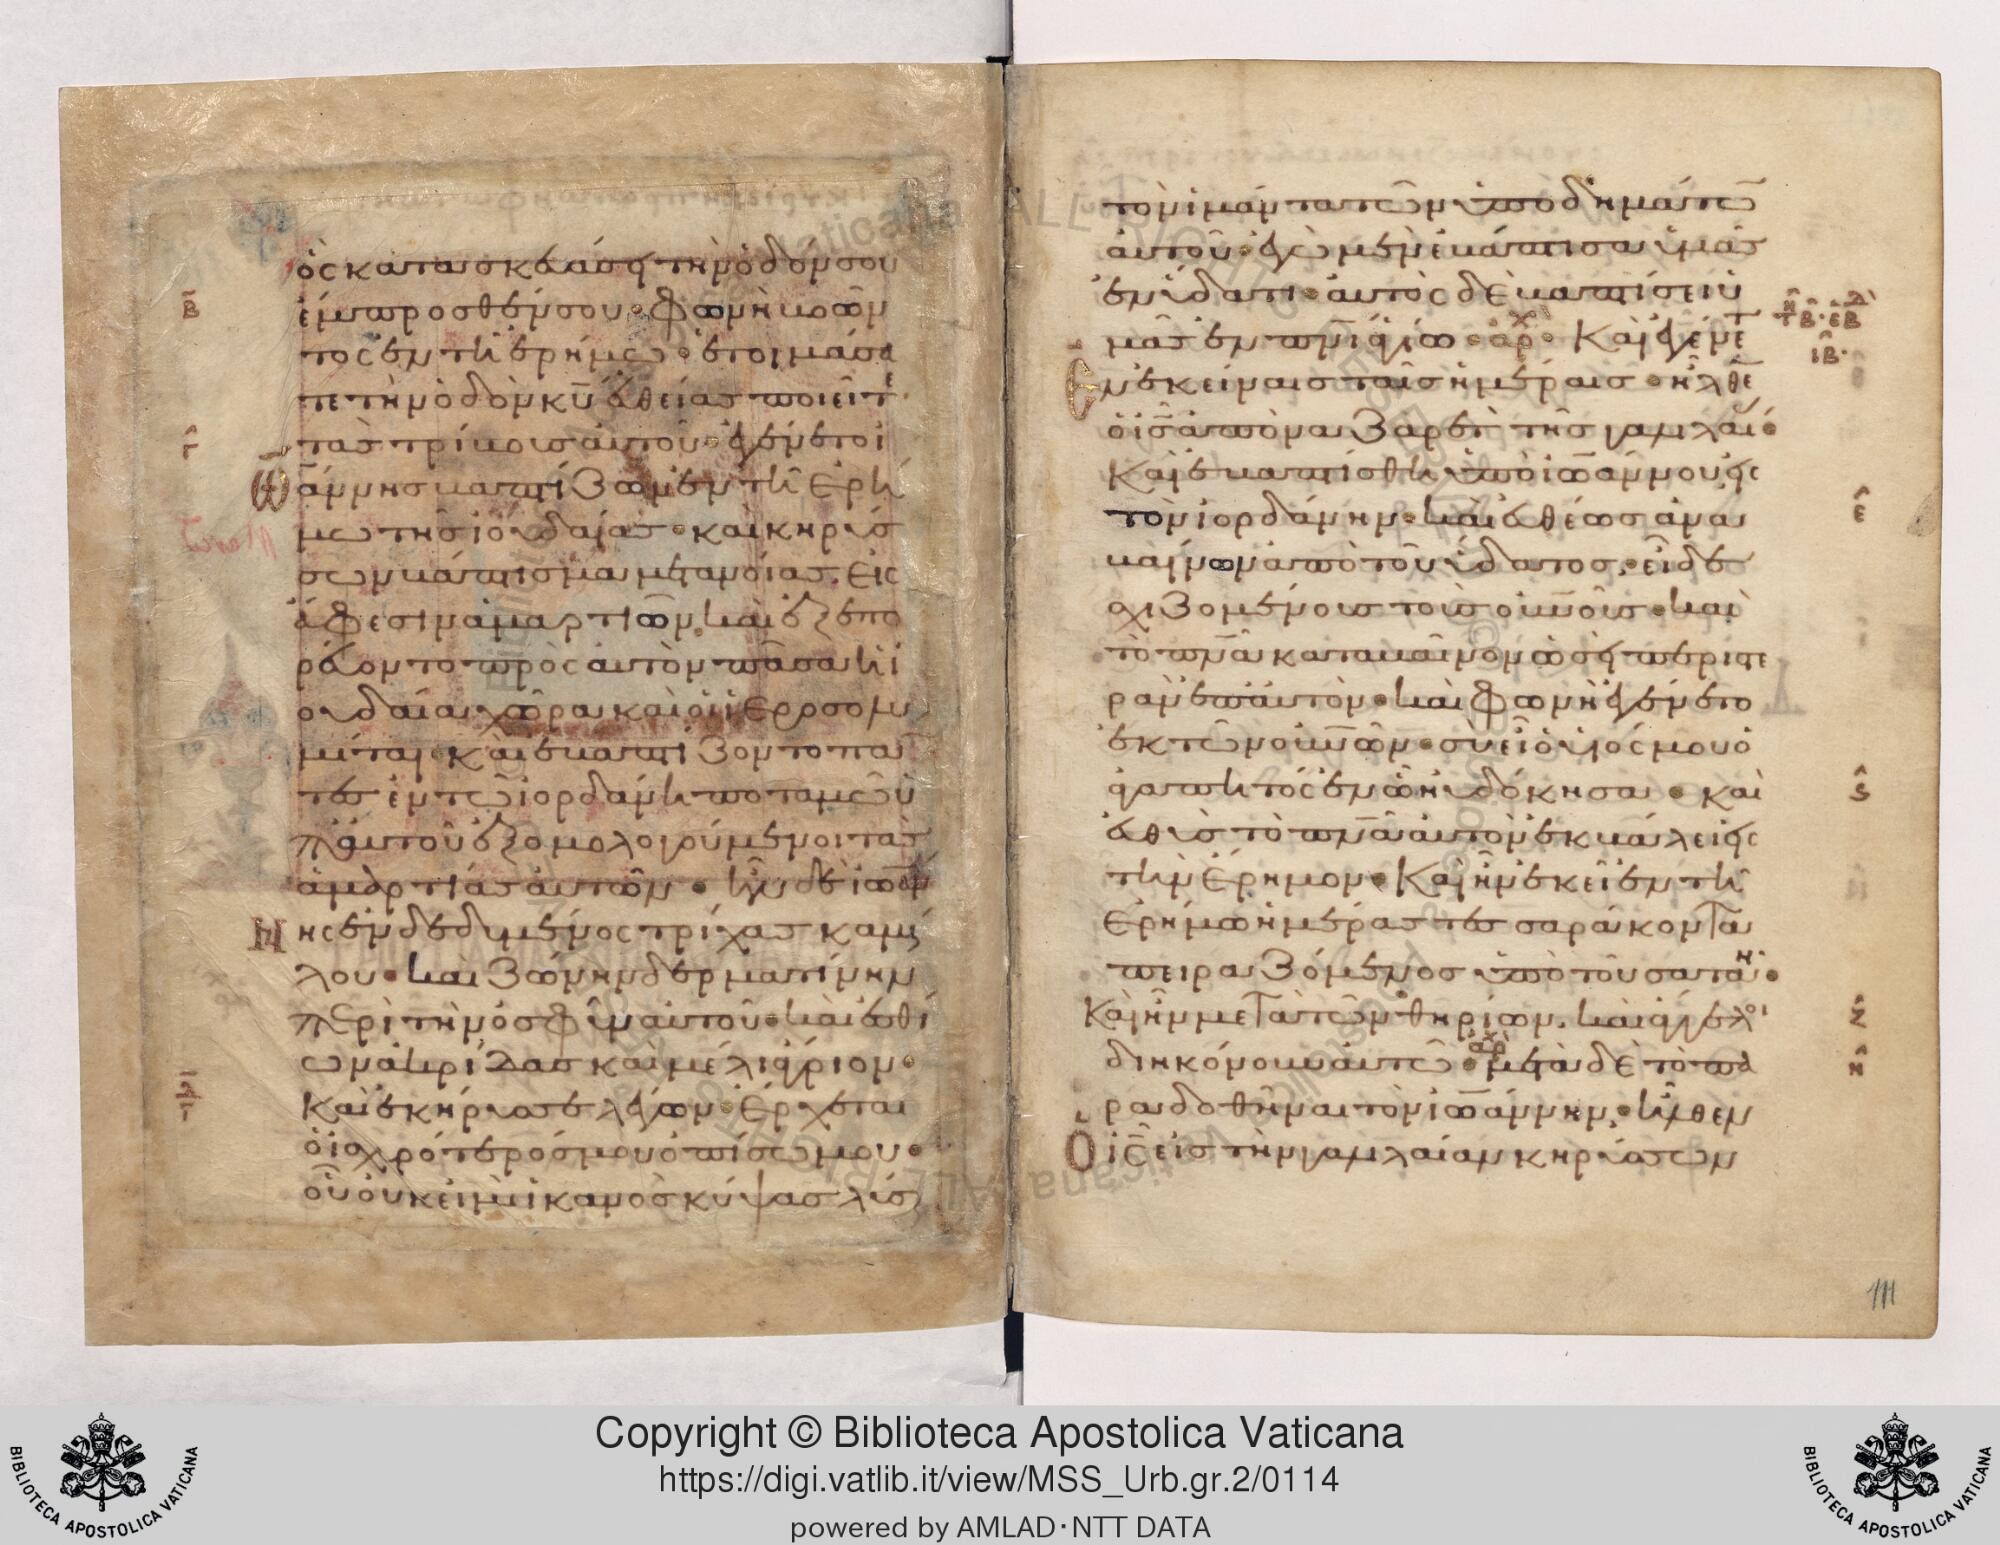 ὃς κατασκευάσει τὴν ὁδόν σου
ἔμπροσθέν σου· φωνὴ βοῶν
τος ἐν τῇ ἐρήμω· ἑτοιμάσα
τε τὴν ὁδὸν κ̅υ̅ εὐθείας ποιεῖτε
τὰς τρίβους αὐτοῦ· ἐγένετο ἰ
ωάννης βαπτίζων ἐν τῇ ἐρή
μω τῆς ἰουδαίας· καὶ κηρύσ
σων βάπτισμα μετανοίας εἰς
ἄφεσιν ἁμαρτιῶν, καὶ ἐξεπο
ρεύοντο πρὸς αὐτὸν πᾶσα ἡ ἰ
ουδαία χώρα καὶ οἱ ἱεροσολυ
μίται· καὶ ἐβαπτίζοντο πάν
τες ἐν τῶ ἰορδάνη ποταμῶ ὑ
π' αὐτοῦ ἐξομολογούμενοι τὰς
ἁμαρτίας αὐτῶν· ἦν δὲ ἰωάν
νης ἐνδεδυμένος τρίχας καμή
λου· καὶ ζώνην δερματίνην
περὶ τὴν ὀσφῦν αὐτοῦ· καὶ ἐσθί
ων ἀκρίδας καὶ μέλι ἄγριον·
Καὶ ἐκήρυσσε λέγων· ἔρχεται
ὁ ἰσχυρότερός μου ὀπίσω μου·
οὗ οὐκ εἰμὶ ἱκανὸς κύψας λῦσαι
β̅
γ
τὸν ἱμάντα τῶν ὑποδημάτων
αὐτοῦ· ἐγὼ μὲν ἐβάπτισα ὑμᾶς
ἐν ὕδατι· αὐτὸς δὲ βαπτίσει ὑ
μᾶς ἐν π̅ν̅ι̅ ἁγίω· ἀρχ· Καὶ ἐγένετ
Ἐν ἐκείναις ταῖς ἡμέραις· ἦλθεν
ὁ ι̅ς̅ ἀπὸ ναζαρὲτ τῆς γαλιλαί·
Καὶ ἐβαπτίσθη ὑπὸ ἰωάννου εἰς
τὸν ἰορδάνην· καὶ εὐθέως ἀνα
βαίνων ἀπὸ τοῦ ὕδατος, εἶδε
σχιζομένους τοὺς οὐ̅ν̅οὺς· καὶ
τὸ π̅ν̅α̅ καταβαῖνον ὡσεὶ περιστε
ρὰν ἐπ' αὐτὸν· καὶ φωνὴ ἐγένετο
ἐκ τῶν οὐ̅ν̅ῶν· σὺ εἶ ὁ υἱός μου ὁ
ἀγαπητός ἐν ὧ ηὐδόκησα· καὶ
εὐθὺς τὸ π̅ν̅α̅ αὐτὸν ἐκβάλει εἰς
τὴν ἔρημον· Καὶ ἦν ἐκεῖ ἐν τῇ
ἐρήμω ἡμέρας τεσσαράκοντα
πειραζόμενος ὑπὸ τοῦ σατανᾶ·
Καὶ ἦν μετὰ τῶν θηρίων, καὶ ἄγγελοι
διηκόνουν αὐτῶ· ἀρχ μετὰ δὲ τὸ πα
ραδοθῆναι τὸν ἰωάννην, ἦλθεν
Ὁ ι̅ς̅ εἰς τὴν γαλιλαίαν κηρύσσων
ε
ϛ
ζ
η
111
Copyright © Biblioteca Apostolica Vaticana
https://digi.vatlib.it/view/MSS_Urb.gr.2/0114
powered by AMLAD·NTT DATA
BIBLIOTECA APOSTOLICA VATICANA
BIBLIOTECA APOSTOLICA VATICANA